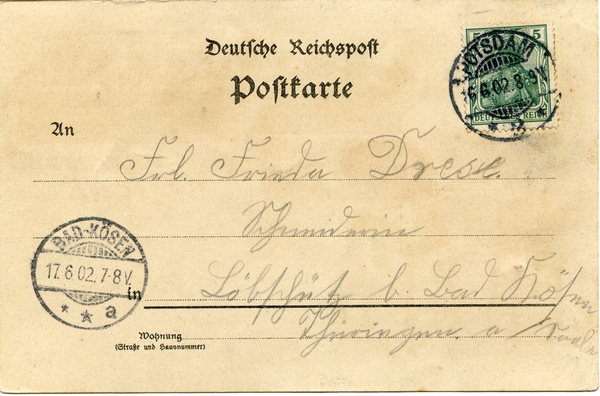 Deutsche Reichspost
Postkarte
5
DEUTSCHES REICH
POTSDAM
6.02.8-9V.
* 2 *
An
Frl. Frieda Drese.
Schneiderin
BAD-KÖSEN
17.6.02.7-8V.
* * a
in
Löbschütz b. Bad Kösen
Thüringen. a Saale
Wohnung
(Straße und Hausnummer)